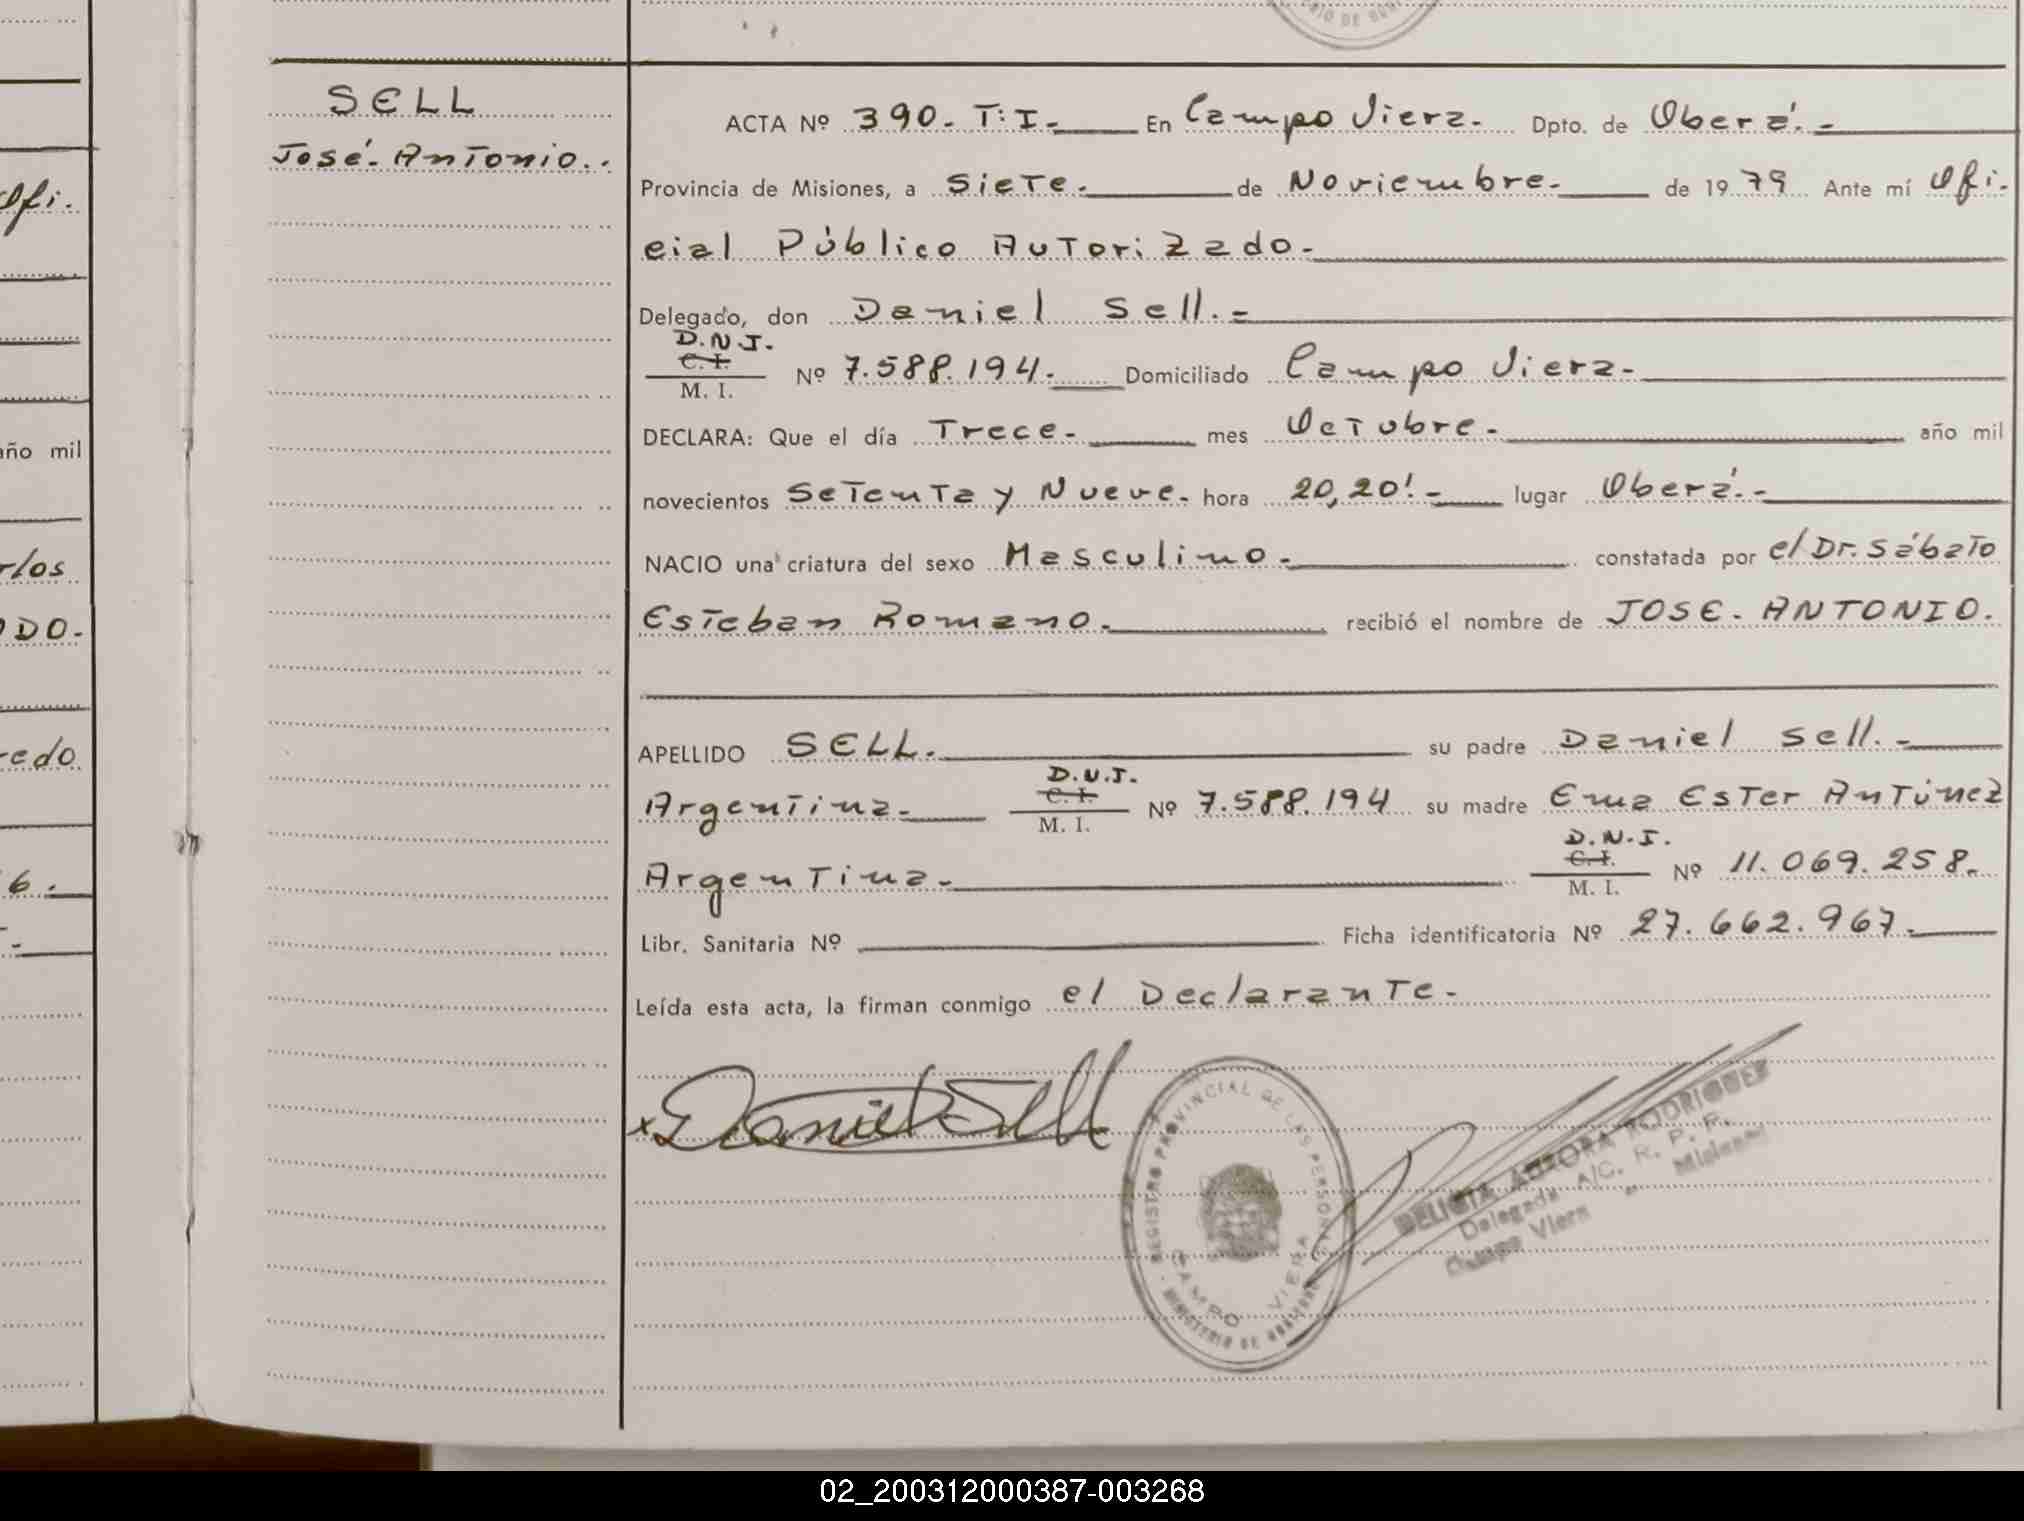 CIO DE GOBI
SELL
José. Antonio..
Ofi.
año mil
rlos
DO.-
redo
6.
ACTA Nº 390. T:I.- En Campo Viera. Dpto. de Oberá.-
Provincia de Misiones, a Siete. de Noviembre. de 1979 Ante mí Ofi-
cial Público Autorizado.
Delegado, don Daniel Sell.-
D.N.I.
C. I.
M. I. Nº 7.588.194. Domiciliado Campo Viera.
DECLARA: Que el día Trece. mes Octubre. año mil
novecientos Setenta y Nueve. hora 20,20!- lugar Oberá.-
NACIO una criatura del sexo Masculino. constatada por el Dr. Sábato
Esteban Romano. recibió el nombre de JOSE. ANTONIO.
APELLIDO SELL. su padre Daniel Sell.-
D.N.I.
C. I.
Argentina. M. I. Nº 7.588.194 su madre Ema Ester Antúnez
D.N.I.
C. I.
Argentina. M. I. Nº 11.069.258.
Libr. Sanitaria Nº Ficha identificatoria Nº 27.662.967.
Leída esta acta, la firman conmigo el Declarante.
x Daniel Sell
REGISTRO PROVINCIAL DE LAS PERSONAS
CAMPO VIERA
MINISTERIO DE GOBIERNO
DELICIA AURORA RODRIGUEZ
Delegada A/C. R. P. P.
Campo Viera - Misiones
02_200312000387-003268